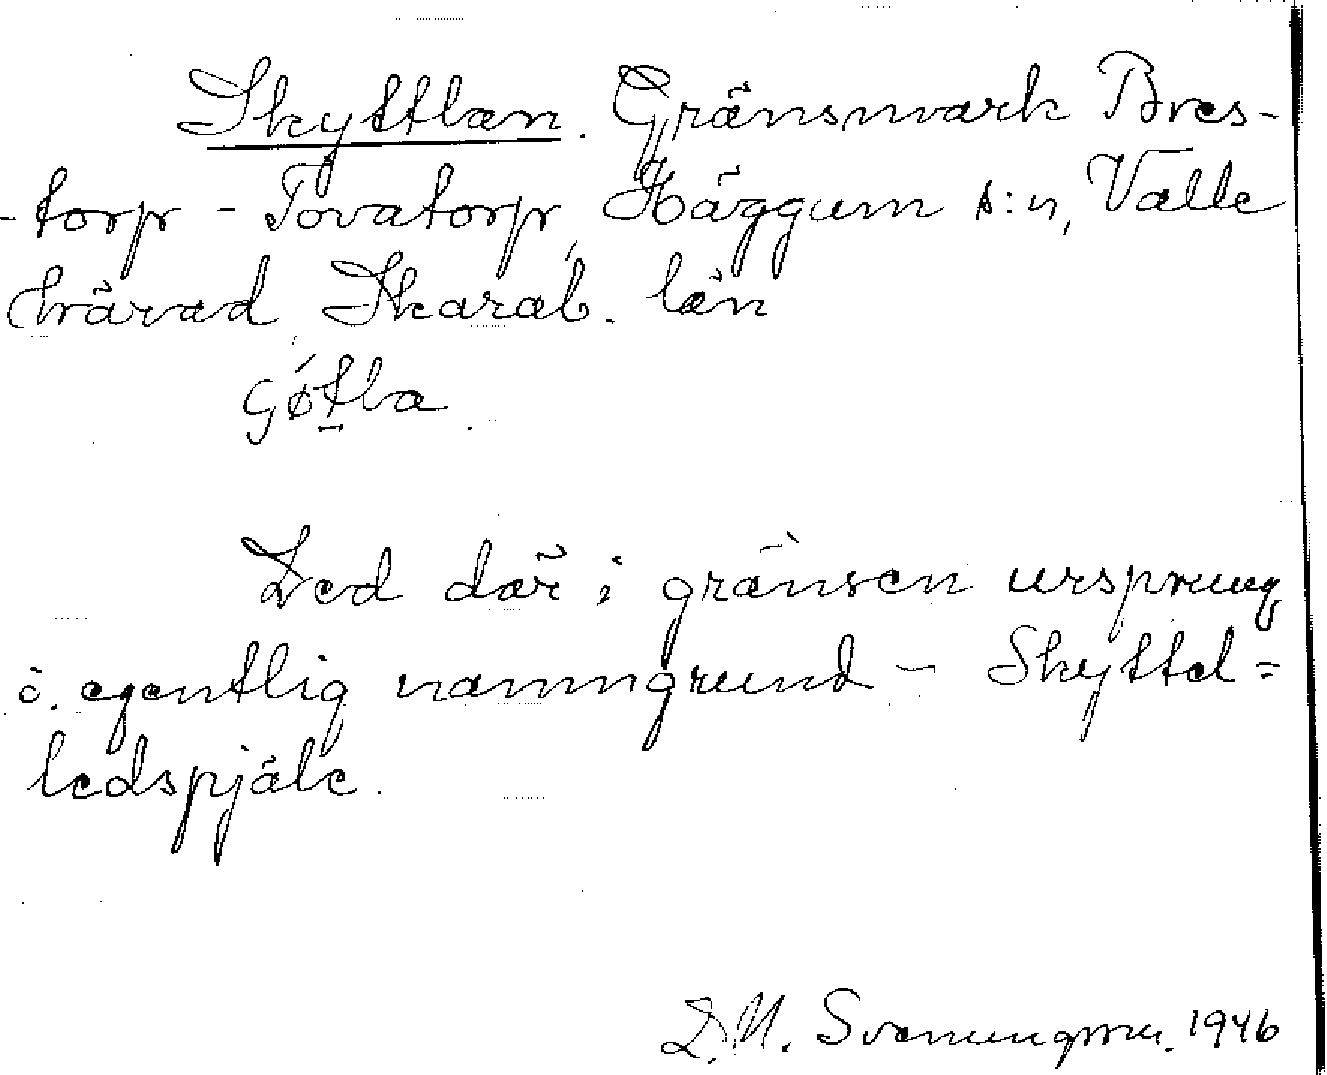 Skyttlan. Gränsmark Bres-
-torp - Tovatorp, Häggum s:n, Valle
härad, Skarab. län
Led där i gränsen ursprung
o. egentlig namngrund - Skyttel=
ledspjäle.
Svenungsson. 1946